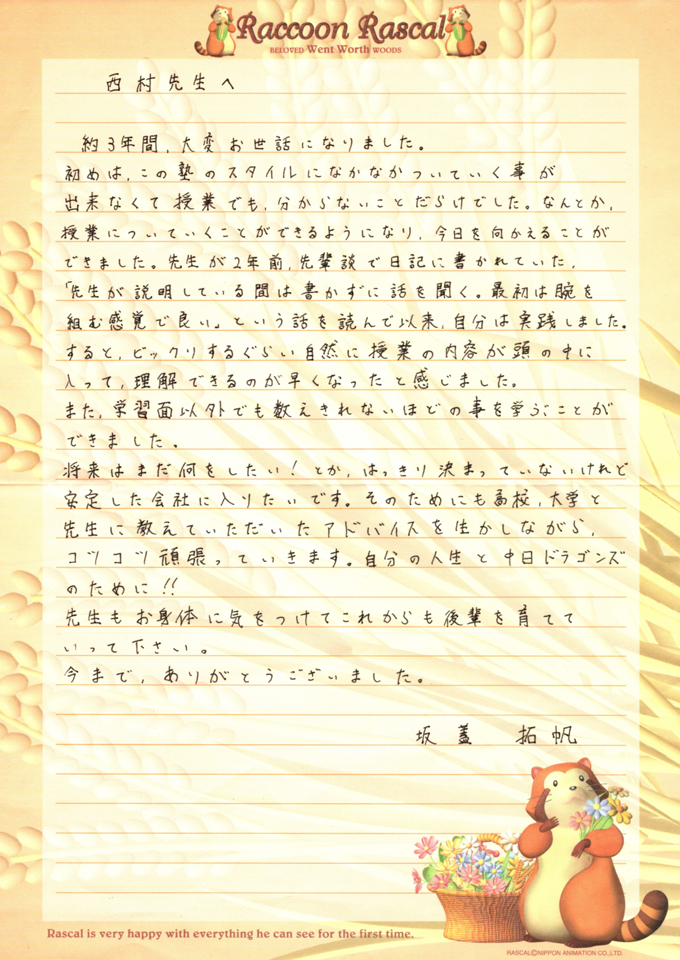 Raccoon Rascal
BELOVED Went Worth WOODS
西村先生へ
約3年間,大変お世話になりました。
初めは,この塾のスタイルになかなかついていく事が
出来なくて授業でも,分からないことだらけでした。なんとか,
授業についていくことができるようになり,今日を向かえることが
できました。先生が2年前,先輩談で日記に書かれていた,
「先生が説明している間は書かずに話を聞く。最初は腕を
組む感覚で良い」という話を読んで以来,自分は実践しました。
すると,ビックリするぐらい自然に授業の内容が頭の中に
入って,理解できるのが早くなったと感じました。
また,学習面以外でも数えきれないほどの事を学ぶことが
できました。
将来はまだ何をしたい!とか,はっきり決まっていないけれど
安定した会社に入りたいです。そのためにも高校,大学と
先生に教えていただいたアドバイスを生かしながら,
コツコツ頑張っていきます。自分の人生と中日ドラゴンズ
のために!!
先生もお身体に気をつけてこれからも後輩を育てて
いって下さい。
今まで,ありがとうございました。
坂蓋 拓帆
Rascal is very happy with everything he can see for the first time.
RASCAL©NIPPON ANIMATION CO.,LTD.